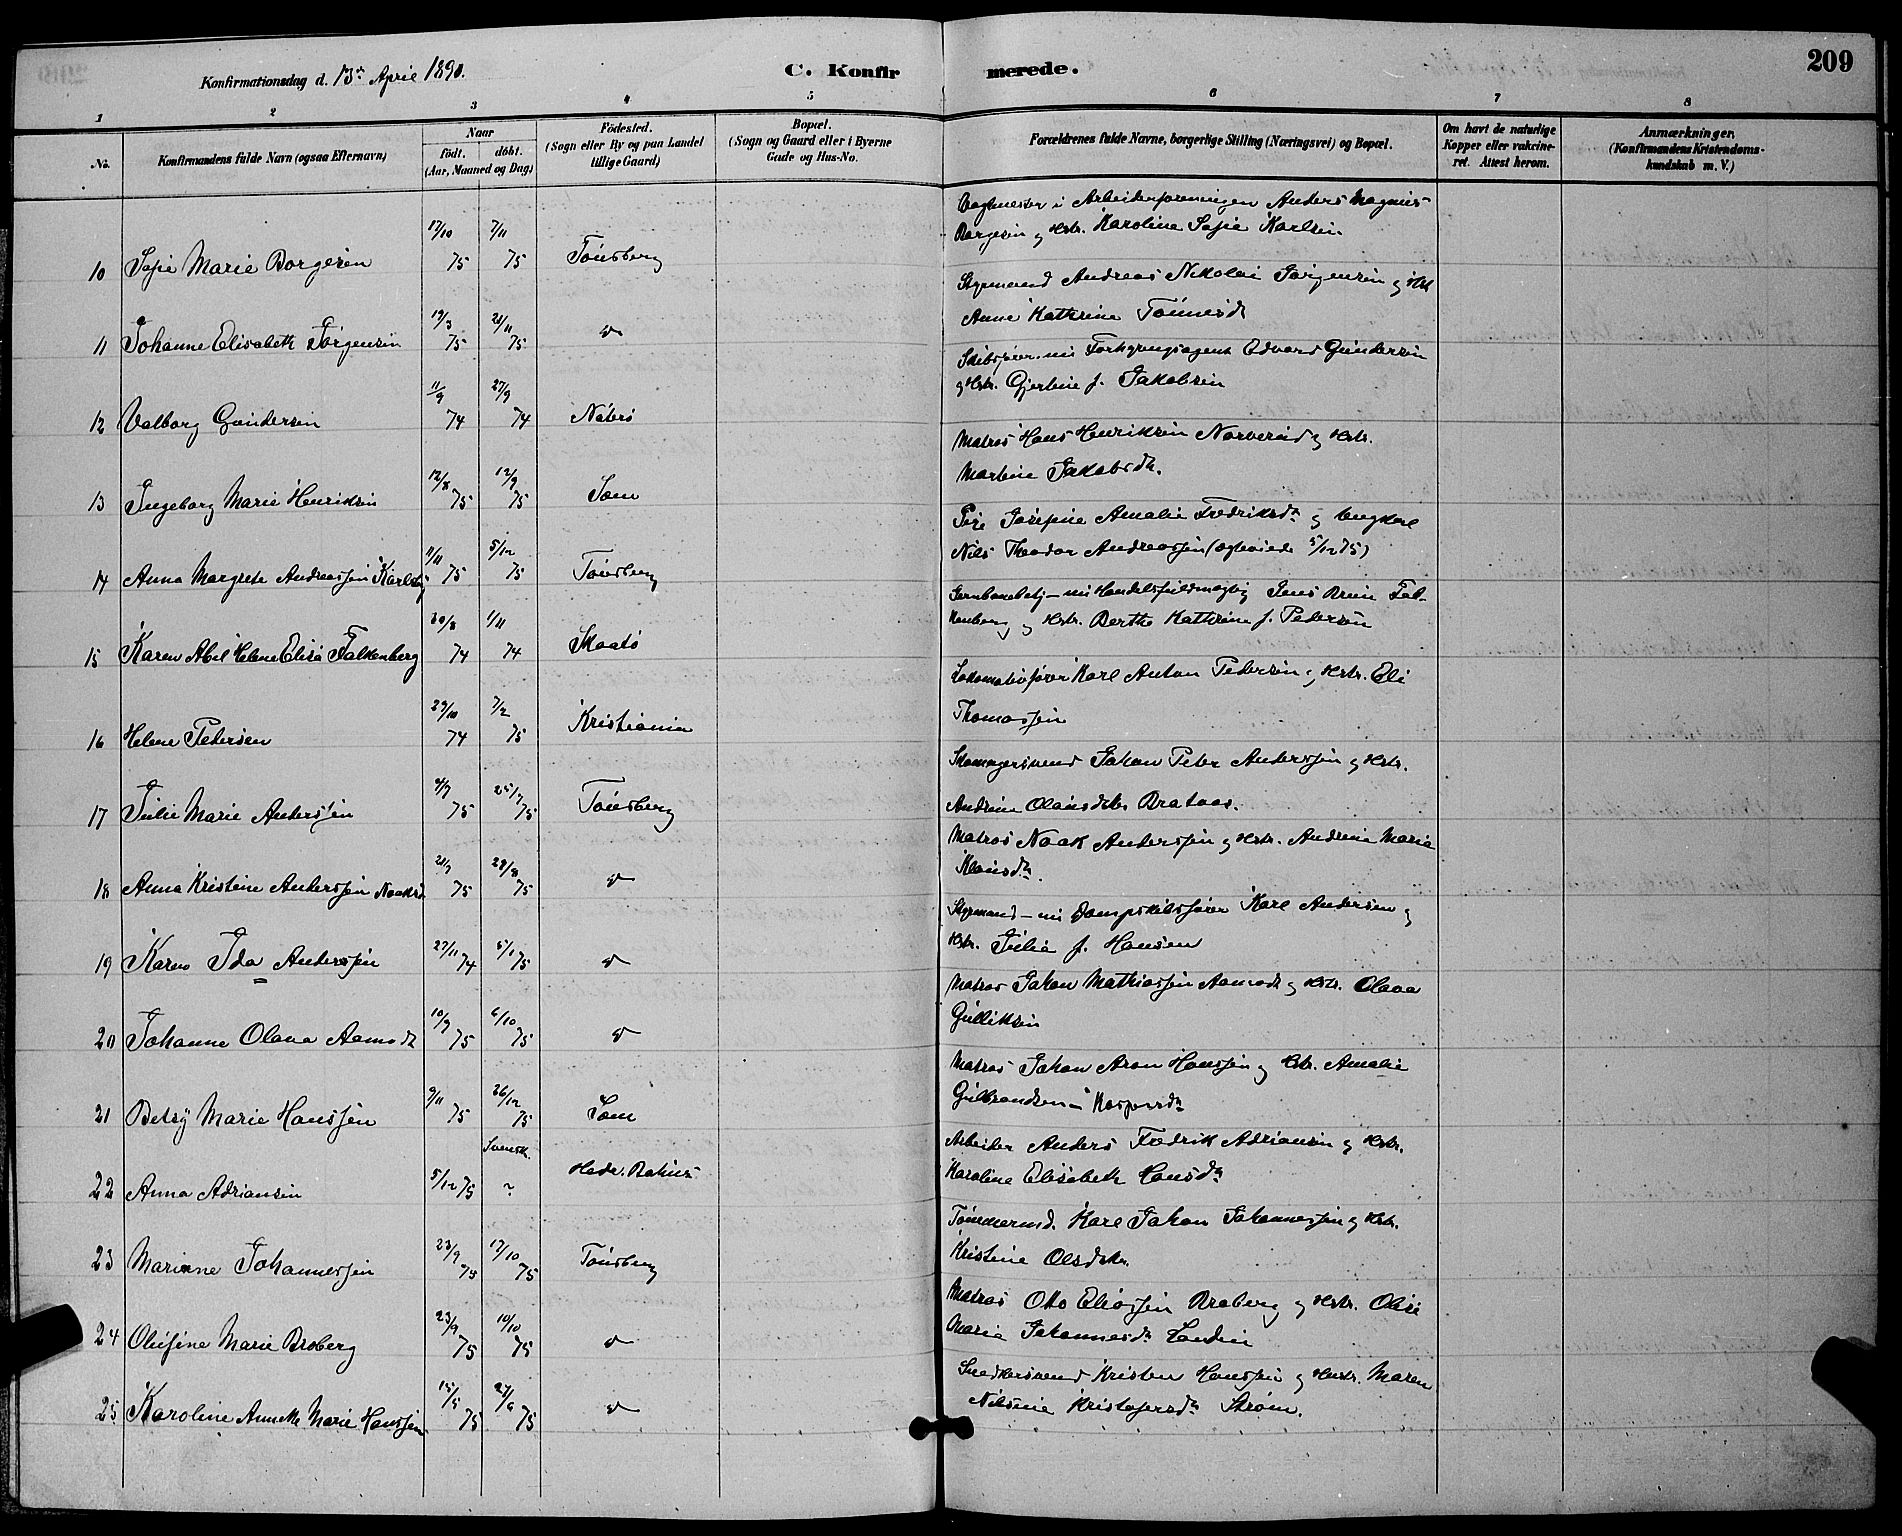 209
Konfirmationsdag d. 13de April 1890.
C. Konfirmerede.
1 2 3 4 5 6 7 8
No.
Konfirmandens fulde Navn (ogsaa Efternavn)
Naar
födt. döbt.
(Aar, Maaned og Dag)
Födested.
(Sogn eller By og paa Landet
tillige Gaard)
Bopæl.
(Sogn og Gaard eller i Byerne
Gade og Hus-No.
Forældrenes fulde Navne, borgerlige Stilling (Næringsvei) og Bopæl.
Om havt de naturlige
Kopper eller vakcine-
ret. Attest herom.
Anmærkninger.
(Konfirmandens Kristendoms-
kundskab m. V.)
10 Sofie Marie Borgesen 17/10 75 7/11 75 Tönsberg
i Arbeiderforeningen Anders Magnus
Borgesen og Hstr. Karoline Sofie Karlsen
11 Johanne Elisabeth Jörgensen 19/3 75 21/11 75
Styrmand Andreas Nikolai Jörgensen og Hst
Anne Kathrine Tönnesd
12 Valborg Gundersen 11/9 74 27/9 74 Nöterö
Skibsförer nu Edvard Gundersen
og Hstr. Gjertine f. Jakobsen
13 Ingeborg Marie Henriksen 12/8 75 12/9 75 Sem
Matros Hans Henriksen og Hstr.
Martine Jakobsdtr.
14 Anna Margrete Andreassen Karlsen 11/11 75 5/12 75 Tönsberg
Pige Josefine Amalie Fredriksdtr og Ungkarl
Nils Theodor Andreassen (5/12 75)
15 Karen Abel Helene Elise Falkenberg 20/8 74 1/11 74 Skaatö
nu Handelsfuldmægtig Jens Falkenberg og Hstr. Berthe Kathrine f. Pedersen
16 Helene Pedersen 29/10 74 7/2 75 Kristiania
Lokomotivförer Karl Anton Pedersen og Hstr. Eli
Thomassen
17 Julie Marie Anderssen 4/7 75 25/7 75 Tönsberg
Skomagersvend Johan Peter Anderssen og Hstr.
Andrine Olausdtr Brataas.
18 Anna Kristine Anderssen Noaksd 21/7 75 29/8 75
Matros Noak Anderssen og Hstr. Andrine Marie
Klausdtr.
19 Karen Ida Anderssen 27/11 74 5/1 75
Styrmand – nu Dampskibsförer Karl Andersen og
Hstr. Julia f. Hansen
20 Johanne Olava Aamodt 10/9 75 6/10 75
Matros Johan Mathiassen Aamodt og Hstr. Olava
Gulliksen
21 Betsy Marie Hanssen 9/11 75 26/12 75 Sem
Matros Johan Aron Hanssen og Hstr. Amalie
Gulbrandsen – Kaspersdtr
22 Anna Adriansen 5/12 75 Svensk. ?
Arbeider Anders Fredrik Adriansen og Hstr.
Karoline Elisabeth Hansdtr
23 Marianne Johannessen 23/9 75 17/10 75 Tönsberg
Tömmermd. Karl Johan Johannessen og Hstr.
Kristine Olsdtr.
24 Olufine Marie Broberg 23/9 75 10/10 75
Matros Otto Eliassen Broberg og Hstr. Olise
Marie Johannesdtr
25 Karoline Annette Marie Hanssen 15/5 75 27/6 75
Snedkersvend Kristen Hanssen og Hustr. Maren
Nilsine Kristofersdtr Ström.